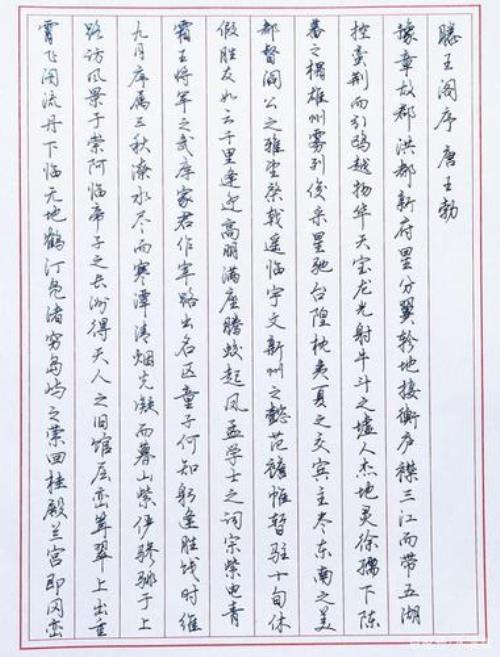 滕王阁序 唐 王勃
豫章故郡洪都新府星分翼轸地接衡庐襟三江而带五湖
控蛮荆而引瓯越物华天宝龙光射牛斗之墟人杰地灵徐孺下陈
蕃之榻雄州雾列俊采星驰台隍枕夷夏之交宾主尽东南之美
都督阎公之雅望棨戟遥临宇文新州之懿范襜帷暂驻十旬休
假胜友如云千里逢迎高朋满座腾蛟起凤孟学士之词宗紫电青
霜王将军之武库家君作宰路出名区童子何知躬逢胜饯时维
九月序属三秋潦水尽而寒潭清烟光凝而暮山紫俨骖騑于上
路访风景于崇阿临帝子之长洲得天人之旧馆层峦耸翠上出重
霄飞阁流丹下临无地鹤汀凫渚穷岛屿之萦回桂殿兰宫即冈峦